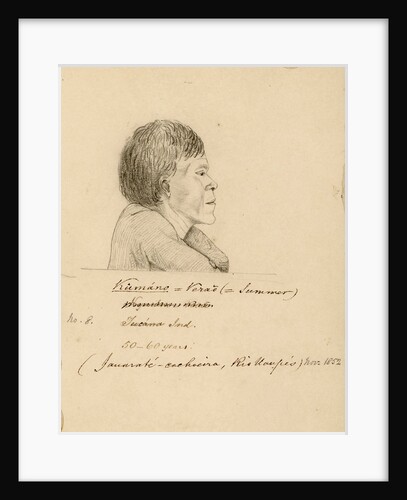 Kumáno = Veraō (= Summer)
No. 8. Tucána Ind.
50-60 years.
(Jauaraté-cachieira, Rio Uaupés) Nov. 1852